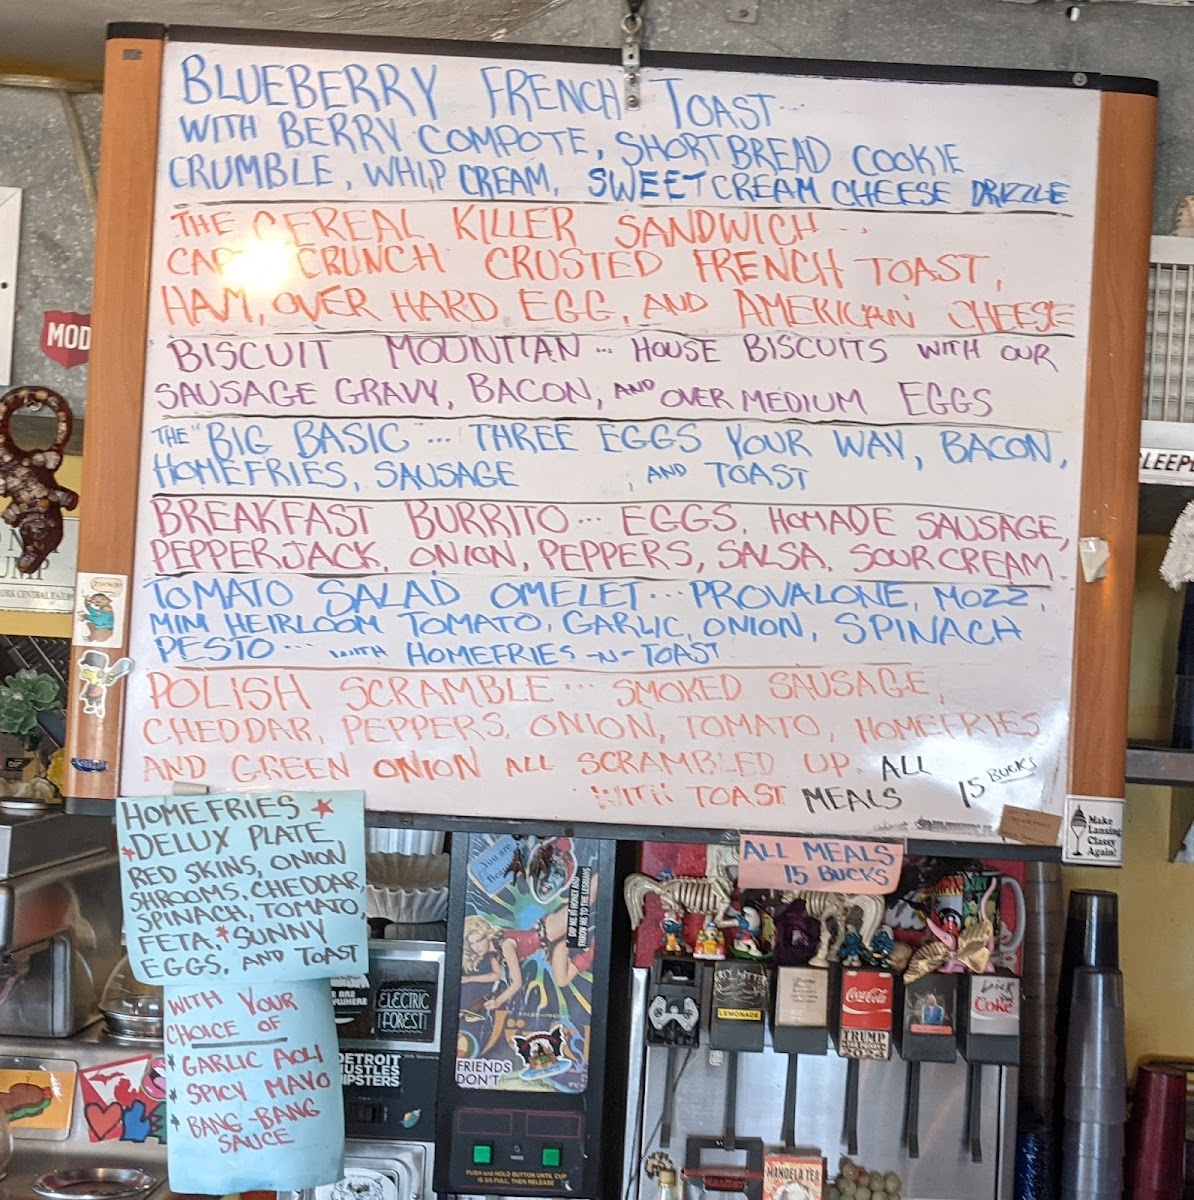 BLUEBERRY FRENCH TOAST...
WITH BERRY COMPOTE, SHORTBREAD COOKIE
CRUMBLE, WHIP CREAM, SWEET CREAM CHEESE DRIZZLE
THE CEREAL KILLER SANDWICH...
CAP CRUNCH CRUSTED FRENCH TOAST,
HAM, OVER HARD EGG, AND AMERICAN CHEESE
BISCUIT MOUNTIAN... HOUSE BISCUITS WITH OUR
SAUSAGE GRAVY, BACON, AND OVER MEDIUM EGGS
THE "BIG BASIC"... THREE EGGS YOUR WAY, BACON,
HOMEFRIES, SAUSAGE , AND TOAST
BREAKFAST BURRITO... EGGS, HOMADE SAUSAGE,
PEPPERJACK, ONION, PEPPERS, SALSA, SOUR CREAM.
TOMATO SALAD OMELET... PROVALONE, MOZZ,
MINI HEIRLOOM TOMATO, GARLIC, ONION, SPINACH
PESTO... WITH HOMEFRIES -N- TOAST
POLISH SCRAMBLE... SMOKED SAUSAGE,
CHEDDAR, PEPPERS, ONION, TOMATO, HOMEFRIES
AND GREEN ONION ALL SCRAMBLED UP.
WITH TOAST
ALL MEALS 15 BUCKS
MOD
SLEEPE
Make
Lansing
Classy
Again!
HOMEFRIES
*DELUX PLATE
RED SKINS, ONION
SHROOMS, CHEDDAR,
SPINACH, TOMATO,
FETA,*SUNNY
EGGS, AND TOAST
WITH YOUR
CHOICE OF
* GARLIC AOLI
* SPICY MAYO
* BANG-BANG
SAUCE
ALL MEALS
15 BUCKS
You are
ELECTRIC
FOREST
DETROIT
HUSTLES
HIPSTERS
FRIENDS
DON'T
DIP ME IN HONEY AND
THROW ME TO THE LESBIANS
PUSH and HOLD BUTTON UNTIL CUP
IS 2/3 FULL, THEN RELEASE
LEMONADE
Coca-Cola
TRUMP
Coke
MANDELA TEA